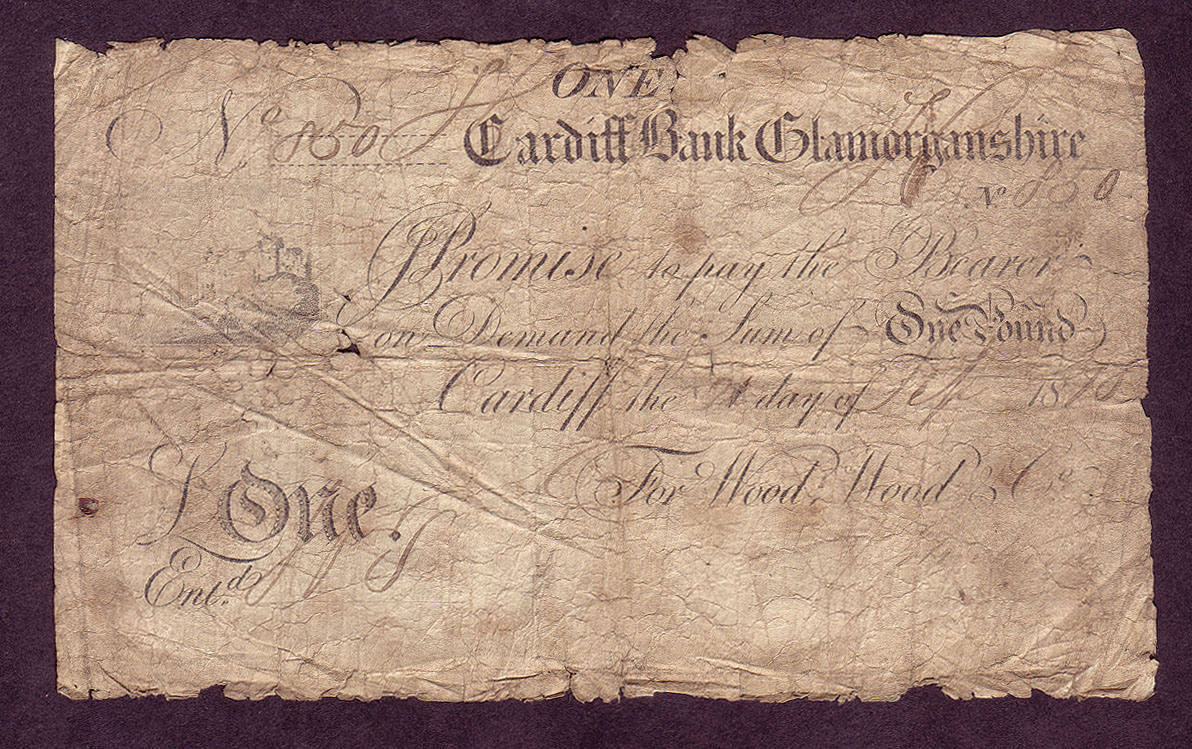 ONE
No 850 Cardiff Bank Glamorganshire
No 850
I Promise to pay the Bearer
on Demand the Sum of One Pound
Cardiff the day of 18
For Wood, Wood & Co.
£ One.
Entd